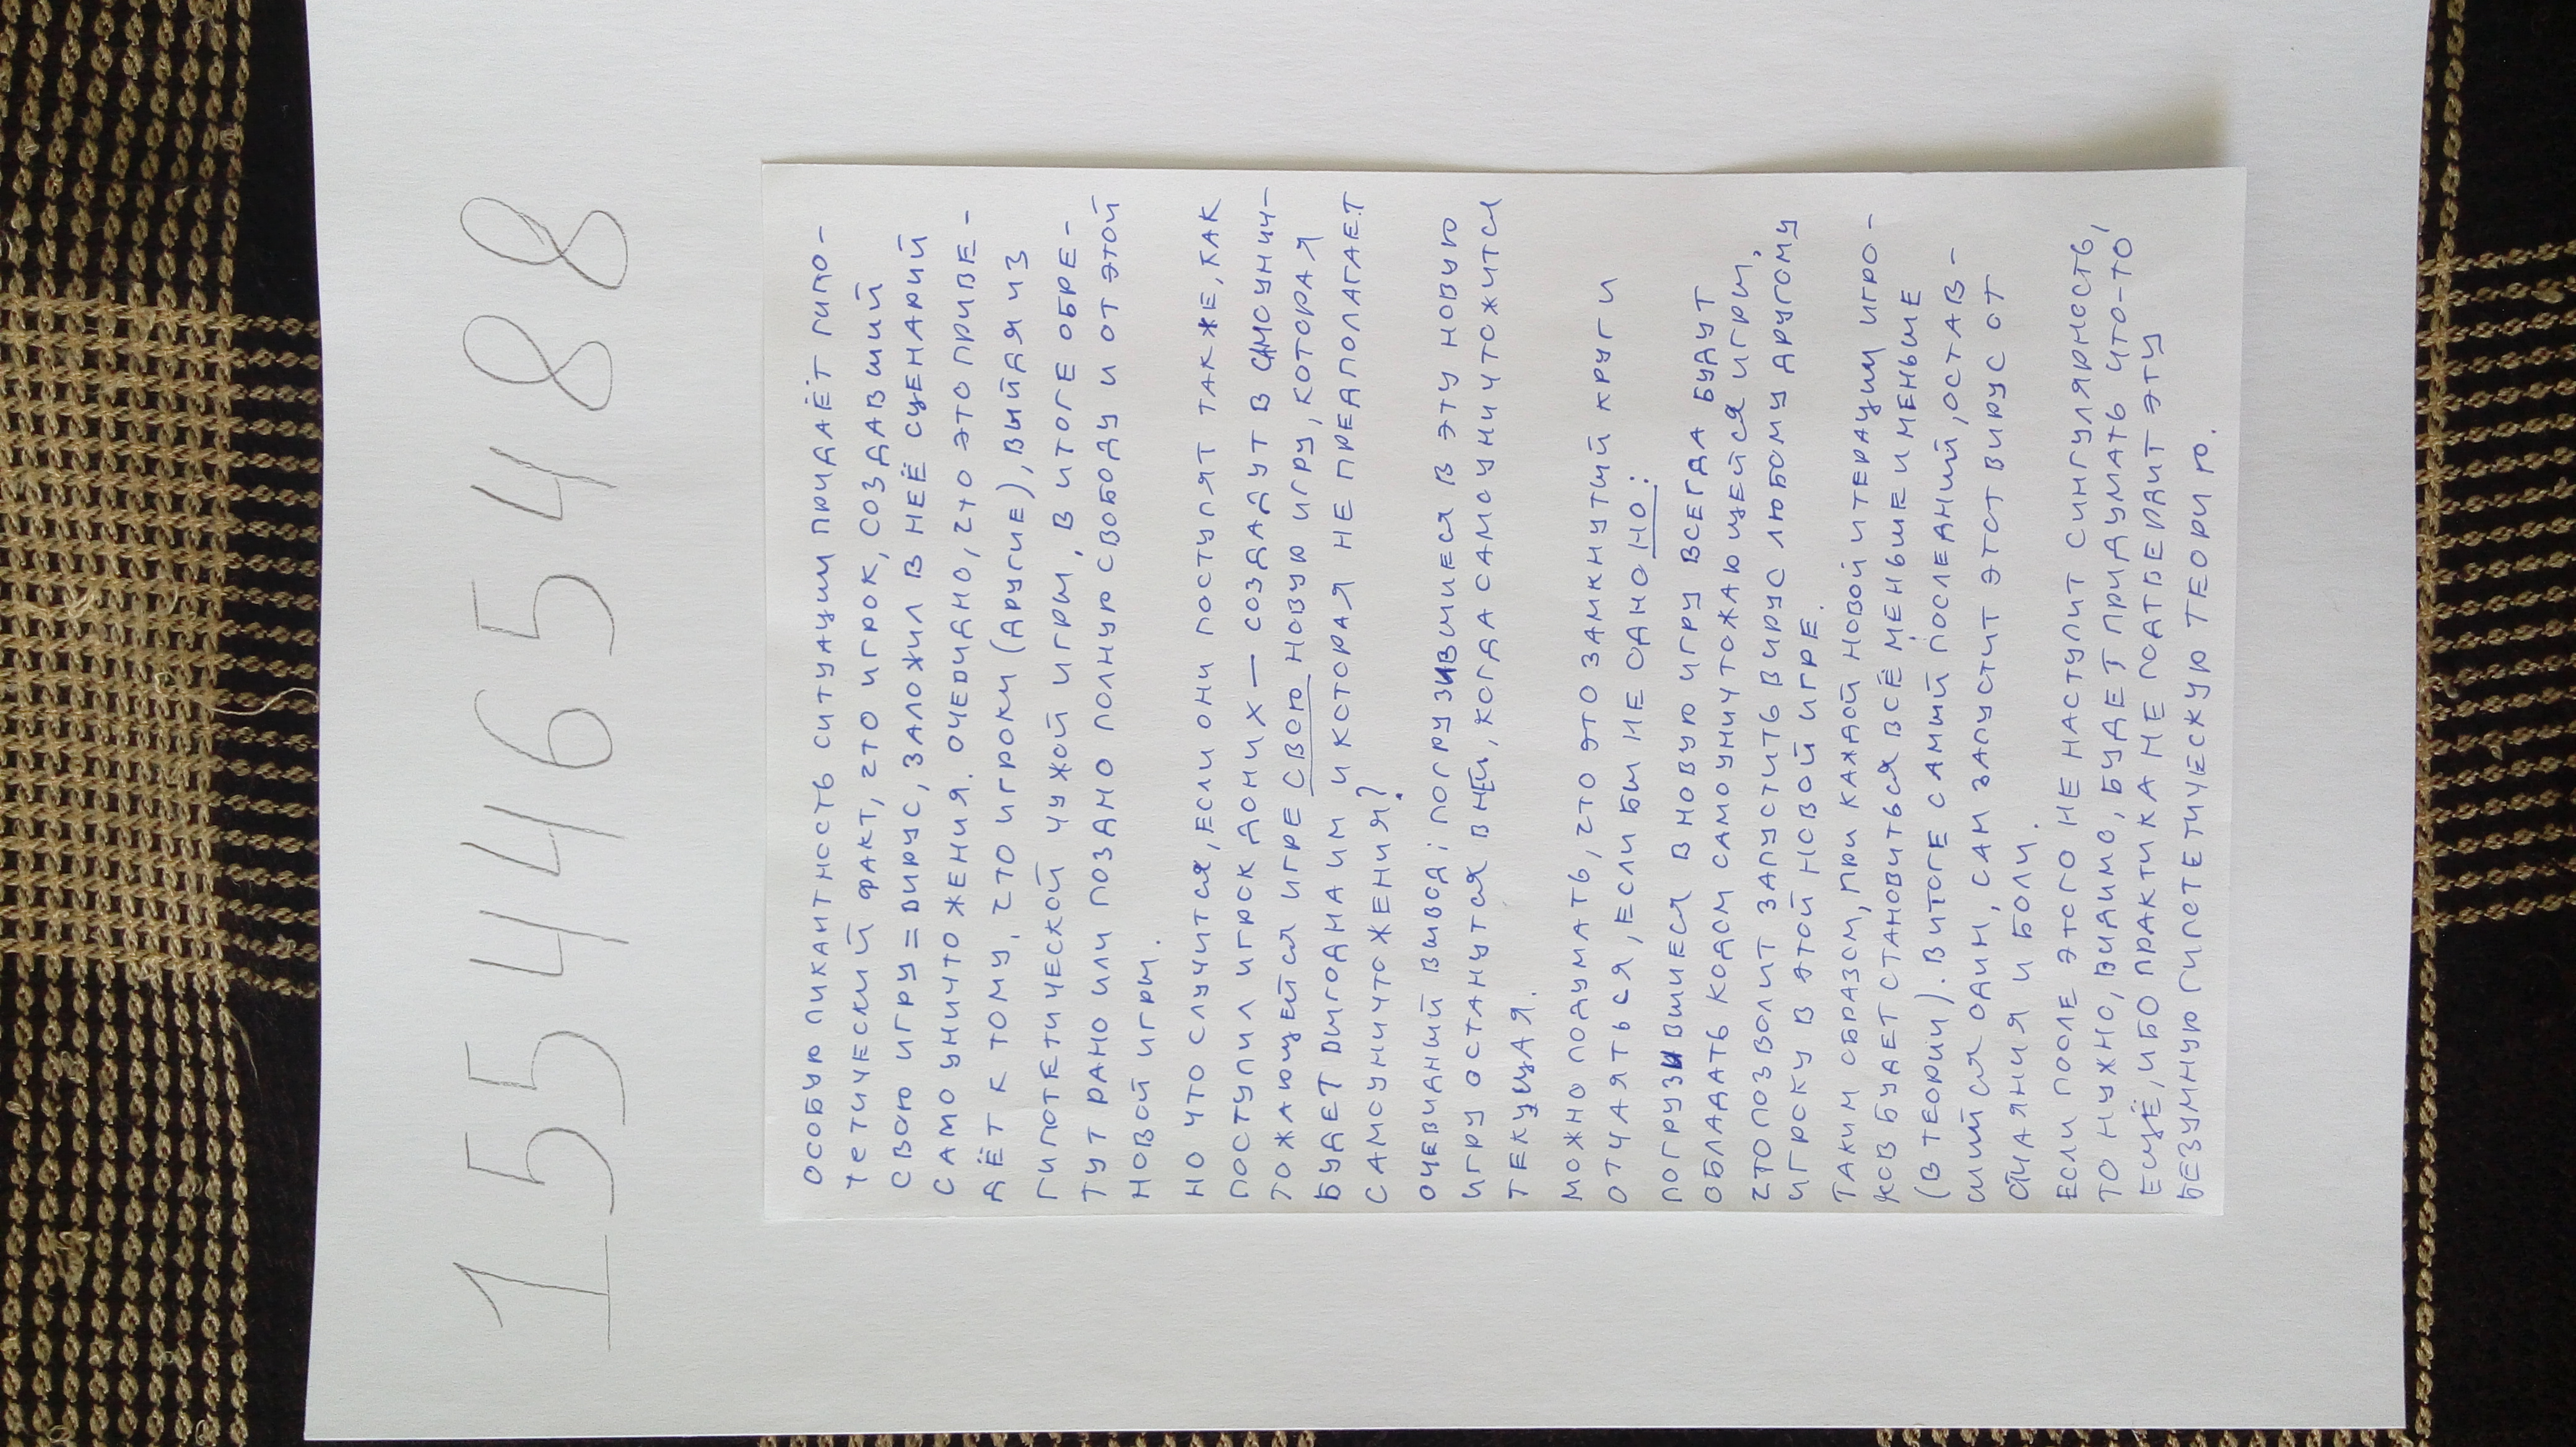 15546548 8
ОСОБУЮ ПИКАНТНОСТЬ СИТУАЦИИ ПРИДАЁТ ГИПО-
ТЕТИЧЕСКИЙ ФАКТ, ЧТО ИГРОК, СОЗДАВШИЙ
СВОЮ ИГРУ = ВИРУС, ЗАЛОЖИЛ В НЕЁ СЦЕНАРИЙ
САМОУНИЧТОЖЕНИЯ. ОЧЕВИДНО, ЧТО ЭТО ПРИВЕ-
ДЁТ К ТОМУ, ЧТО ИГРОКИ (ДРУГИЕ), ВЫЙДЯ ИЗ
ГИПОТЕТИЧЕСКОЙ ЧУЖОЙ ИГРЫ, В ИТОГЕ ОБРЕ-
ТУТ РАНО ИЛИ ПОЗДНО ПОЛНУЮ СВОБОДУ И ОТ ЭТОЙ
НОВОЙ ИГРЫ.
НО ЧТО СЛУЧИТСЯ, ЕСЛИ ОНИ ПОСТУПЯТ ТАКЖЕ, КАК
ПОСТУПИЛ ИГРОК ДО НИХ — СОЗДАДУТ В САМОУНИЧ-
ТОЖАЮЩЕЙСЯ ИГРЕ СВОЮ НОВУЮ ИГРУ, КОТОРАЯ
БУДЕТ ВЫГОДНА ИМ И КОТОРАЯ НЕ ПРЕДПОЛАГАЕТ
САМОУНИЧТОЖЕНИЯ?
ОЧЕВИДНЫЙ ВЫВОД: ПОГРУЗИВШИЕСЯ В ЭТУ НОВУЮ
ИГРУ ОСТАНУТСЯ В НЕЙ, КОГДА САМОУНИЧТОЖИТСЯ
ТЕКУЩАЯ.
МОЖНО ПОДУМАТЬ, ЧТО ЭТО ЗАМКНУТЫЙ КРУГ И
ОТЧАЯТЬСЯ, ЕСЛИ БЫ НЕ ОДНО НО:
ПОГРУЗИВШИЕСЯ В НОВУЮ ИГРУ ВСЕГДА БУДУТ
ОБЛАДАТЬ КОДОМ САМОУНИЧТОЖАЮЩЕЙСЯ ИГРЫ,
ЧТО ПОЗВОЛИТ ЗАПУСТИТЬ ВИРУС ЛЮБОМУ ДРУГОМУ
ИГРОКУ В ЭТОЙ НОВОЙ ИГРЕ.
ТАКИМ ОБРАЗОМ, ПРИ КАЖДОЙ НОВОЙ ИТЕРАЦИИ ИГРО-
КОВ БУДЕТ СТАНОВИТЬСЯ ВСЁ МЕНЬШЕ И МЕНЬШЕ
(В ТЕОРИИ). В ИТОГЕ САМЫЙ ПОСЛЕДНИЙ, ОСТАВ-
ШИЙСЯ ОДИН, САМ ЗАПУСТИТ ЭТОТ ВИРУС ОТ
ОТЧАЯНИЯ И БОЛИ.
ЕСЛИ ПОСЛЕ ЭТОГО НЕ НАСТУПИТ СИНГУЛЯРНОСТЬ,
ТО НУЖНО, ВИДИМО, БУДЕТ ПРИДУМАТЬ ЧТО-ТО
ЕЩЁ, ИБО ПРАКТИКА НЕ ПОДТВЕРДИТ ЭТУ
БЕЗУМНУЮ ГИПОТЕТИЧЕСКУЮ ТЕОРИЮ.